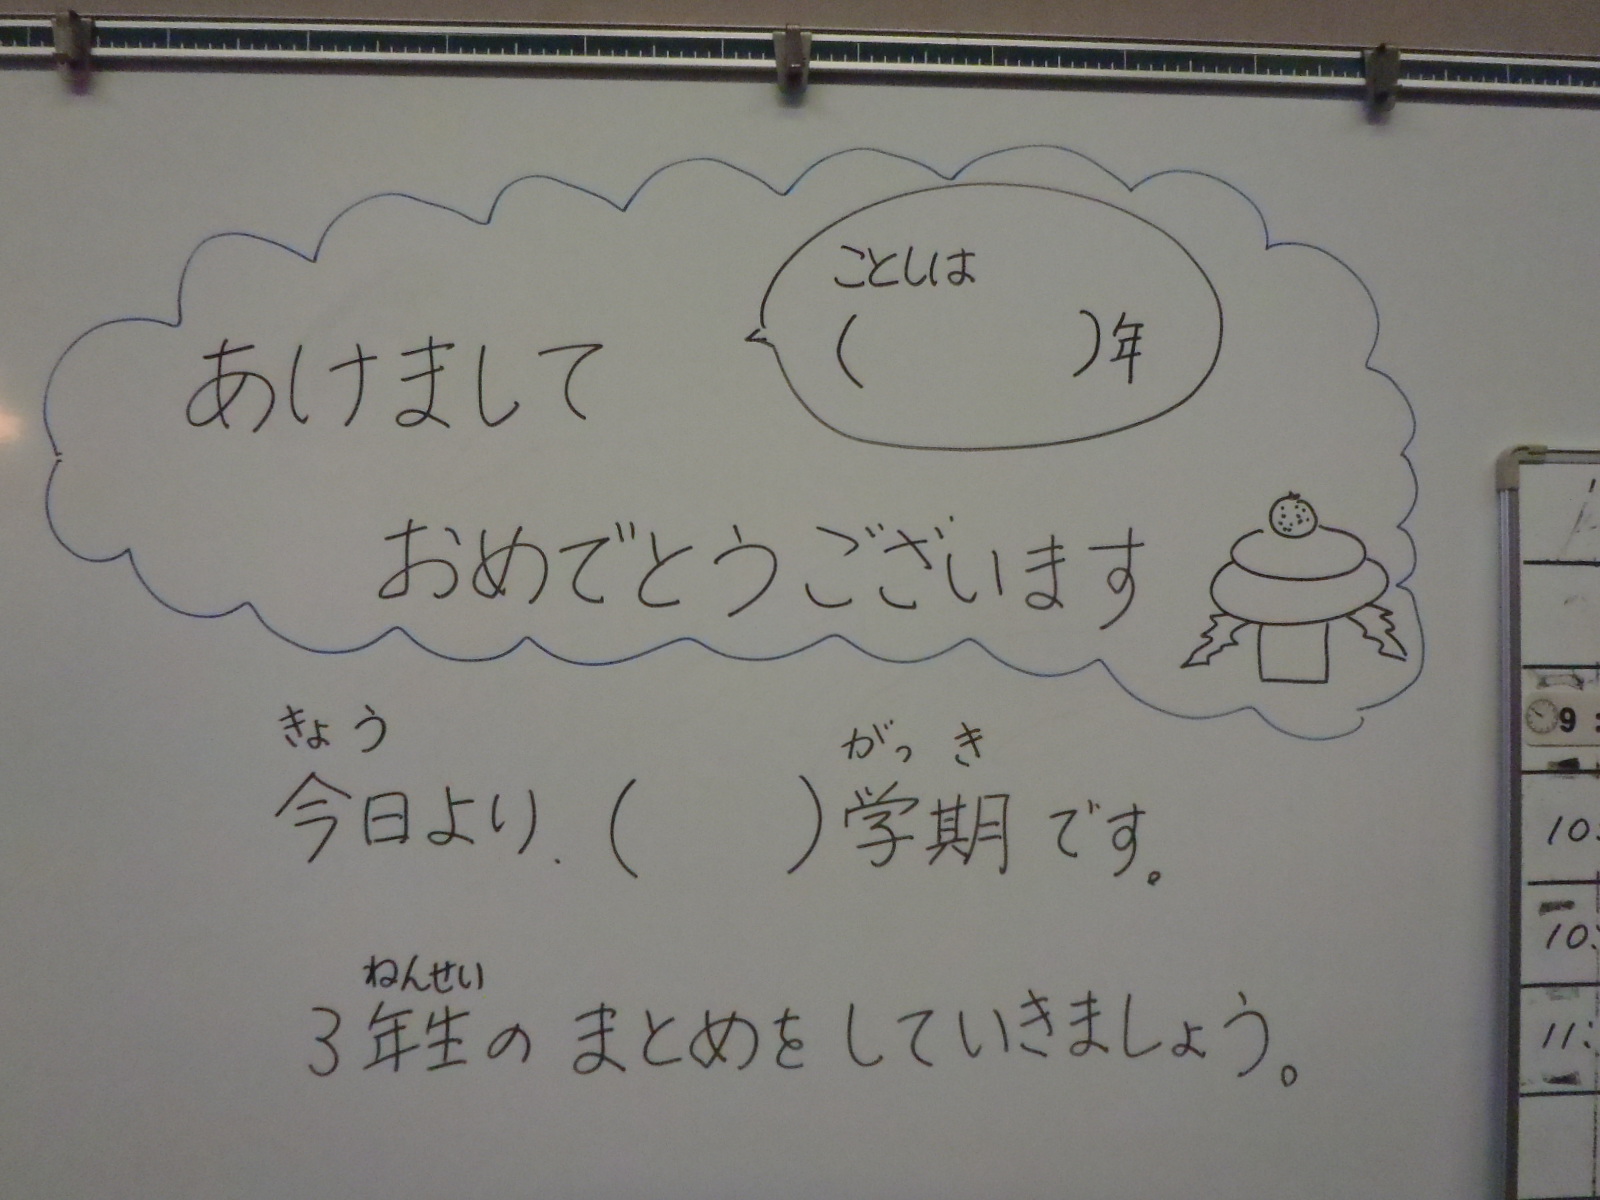 ことしは
(　　　)年
あけまして
おめでとうございます
きょう　がっ　き
今日より、(　　)学期です。
ねんせい
3年生のまとめをしていきましょう。
9:
10:
10:
11: